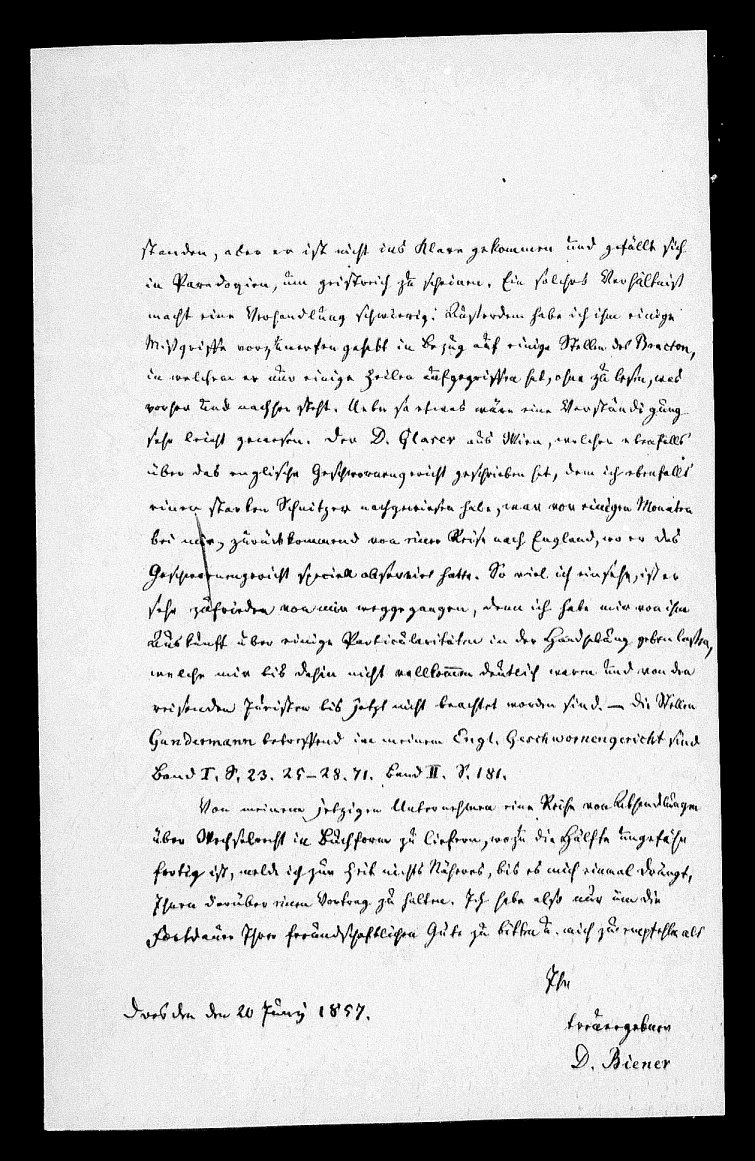 standen, aber er ist nicht ins Klare gekommen und gefällt sich
in Paradoxien, um geistreich zu scheinen. Ein solches Verhältniß
macht eine Verhandlung schwierig. Außerdem habe ich ihm einige
Mißgriffe vorzuwerfen gehabt in Bezug auf einige Stellen des Bracton,
in welchem er nur einige Zeilen aufgegriffen hat, ohne zu lesen, was
vorher und nachher steht. Ueber so etwas wäre eine Verständigung
sehr leicht gewesen. Der D. Glaser aus Wien, welcher ebenfalls
über das englische Geschwornengericht geschrieben hat, dem ich ebenfalls
einen starken Schnitzer nachgewiesen habe, war vor einigen Monaten
bei mir, zurückkommend von einer Reise nach England, wo er das
Geschwornengericht speciell observirt hatte. So viel ich einsehe, ist er
sehr zufrieden von mir weggegangen, denn ich habe mir von ihm
Auskunft über einige Particularitäten in der Handhabung geben lassen,
welche mir bis dahin nicht vollkommen deutlich waren und von den
reisenden Juristen bis jetzt nicht beachtet worden sind. — Die Stellen
Gundermann betreffend in meinem Engl. Geschwornengericht sind
Band I. S. 23. 25–28. 71. Band II. S. 181.
Von meinem jetzigen Unternehmen eine Reihe von Abhandlungen
über Wechselrecht in Buchform zu liefern, wozu die Hälfte ungefähr
fertig ist, melde ich zur Zeit nichts Näheres, bis es mich einmal drängt,
Ihnen darüber einen Vortrag zu halten. Ich habe also nur um die
Fortdauer Ihrer freundschaftlichen Güte zu bitten u. mich zu empfehlen als
Ihr
Dresden den 20 Juny 1857.
treuergebner
D. Biener